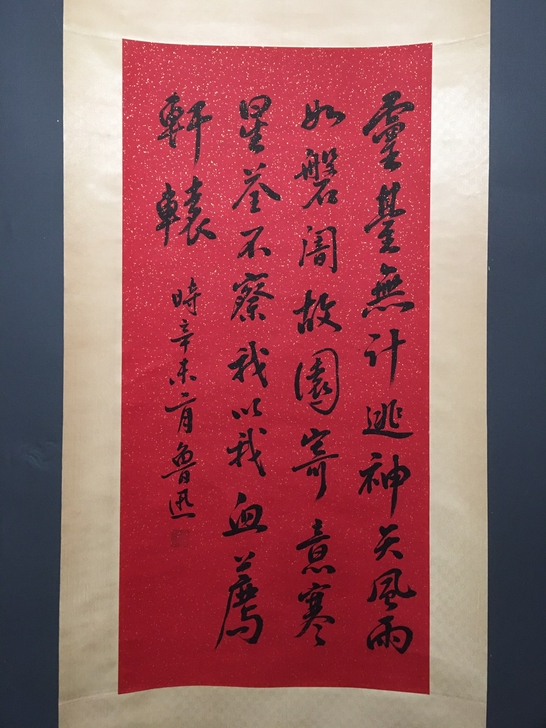 靈臺無計逃神矢風雨
如磐闇故園寄意寒
星荃不察我以我血薦
軒轅 時辛未二月魯迅